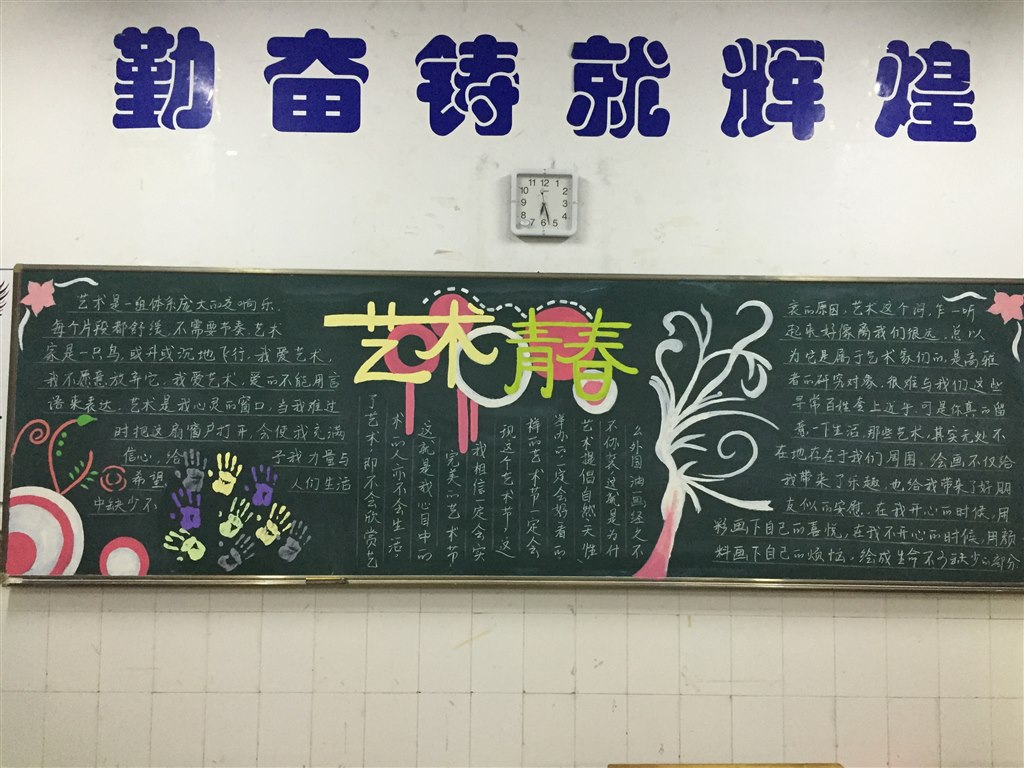 勤奋铸就辉煌
11 12 1
10 2
9 3
8 4
7 6 5
艺术是一组体系庞大的交响乐,
每个片段都舒缓,不需要节奏,艺术
家是一只鸟,或升或沉地飞行,我爱艺术,
我不愿意放弃它,我爱艺术,爱的不能用言
语来表达,艺术是我心灵的窗口,当我难过
时把这扇窗户打开,会使我充满
信心,给 予我力量与
希望 人们生活
中缺少不
艺术青春
了艺术即不会欣赏艺
术的人亦不会生活
这就是我心目中的
完美的艺术节
我相信一定会实
现这个艺术节,这
样的艺术节一定会
举办的一定会好看的
艺术提倡自然天性,
不伪装这就是为什
么外国油画经久不
衰的原因,艺术这个词,乍一听
起来好像离我们很远,总以
为它是属于艺术家们的,是高雅
者的研究对象,很难与我们这些
寻常百姓套上近乎,可是你真的留
意一下生活,那些艺术,其实无处不
在地存在于我们周围,绘画不仅给
我带来了乐趣,也给我带来了好朋
友似的安慰,在我开心的时候,用
彩画下自己的喜悦,在我不开心的时候,用颜
料画下自己的烦恼,绘成生命不可缺少的部分